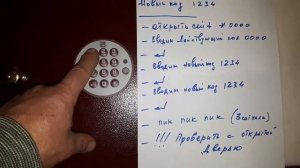 Новый код 1234
– открыть сейф * 0000
– вводим действующий код 0000
– ↵
– вводим новый код 1234
– ↵
– вводим новый код 1234
– ↵
– пик пик пик (3 сигнала)
– !!! Проверить с открытой
дверью